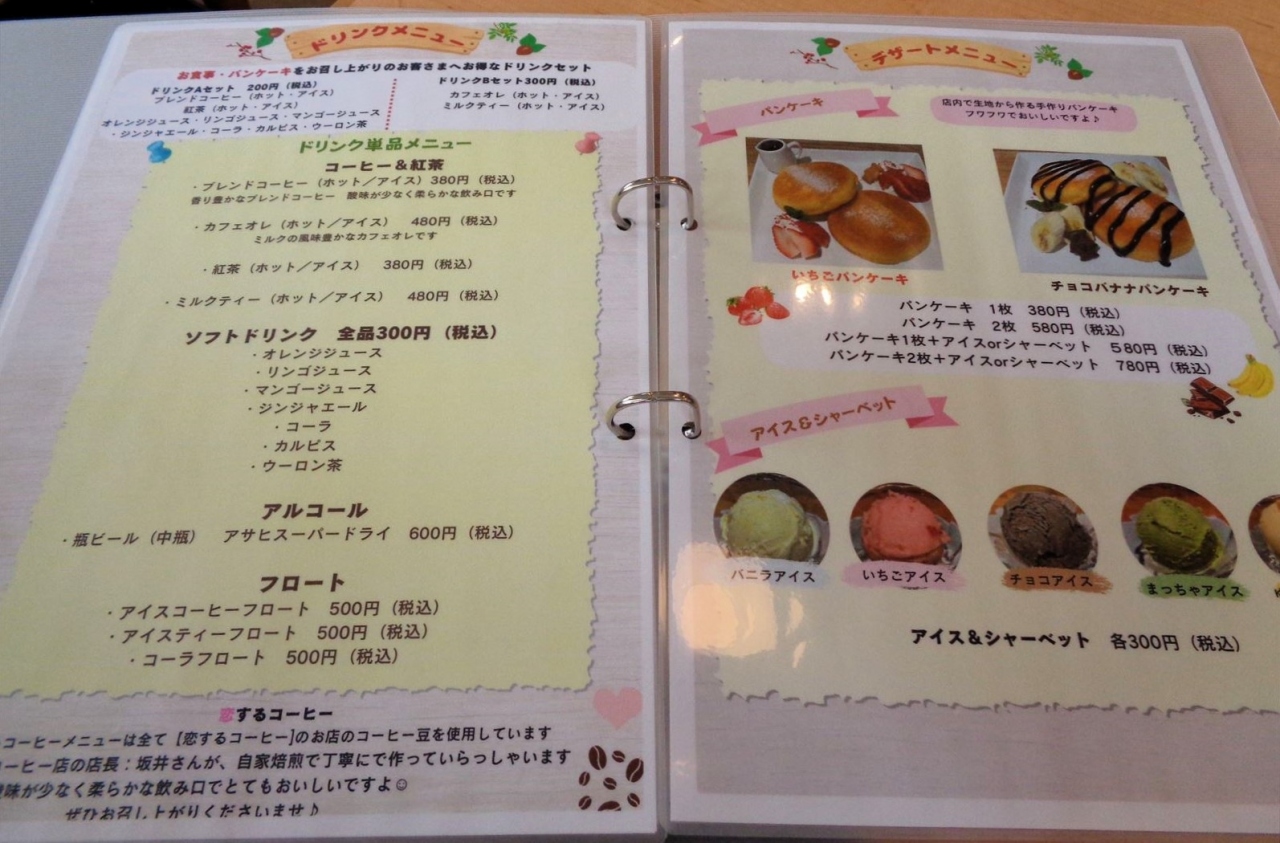 ドリンクメニュー
お食事・パンケーキをお召し上がりのお客さまへお得なドリンクセット
ドリンクAセット 200円（税込）
ブレンドコーヒー（ホット・アイス）
紅茶（ホット・アイス）
オレンジジュース・リンゴジュース・マンゴージュース
・ジンジャエール・コーラ・カルピス・ウーロン茶
ドリンクBセット300円（税込）
カフェオレ（ホット・アイス）
ミルクティー（ホット・アイス）
ドリンク単品メニュー
コーヒー＆紅茶
・ブレンドコーヒー（ホット／アイス）380円（税込）
香り豊かなブレンドコーヒー 酸味が少なく柔らかな飲み口です
・カフェオレ（ホット／アイス） 480円（税込）
ミルクの風味豊かなカフェオレです
・紅茶（ホット／アイス） 380円（税込）
・ミルクティー（ホット／アイス） 480円（税込）
ソフトドリンク 全品300円（税込）
・オレンジジュース
・リンゴジュース
・マンゴージュース
・ジンジャエール
・コーラ
・カルピス
・ウーロン茶
アルコール
・瓶ビール（中瓶） アサヒスーパードライ 600円（税込）
フロート
・アイスコーヒーフロート 500円（税込）
・アイスティーフロート 500円（税込）
・コーラフロート 500円（税込）
恋するコーヒー
コーヒーメニューは全て［恋するコーヒー]のお店のコーヒー豆を使用しています
ーヒー店の店長：坂井さんが、自家焙煎で丁寧にで作っていらっしゃいます
酸味が少なく柔らかな飲み口でとてもおいしいですよ☺
ぜひお召し上がりくださいませ♪
デザートメニュー
パンケーキ
店内で生地から作る手作りパンケーキ
フワフワでおいしいですよ♪
いちごパンケーキ
チョコバナナパンケーキ
パンケーキ 1枚 380円（税込）
パンケーキ 2枚 580円（税込）
パンケーキ1枚＋アイスorシャーベット 580円（税込）
パンケーキ2枚＋アイスorシャーベット 780円（税込）
アイス＆シャーベット
バニラアイス
いちごアイス
チョコアイス
まっちゃアイス
アイス＆シャーベット 各300円（税込）